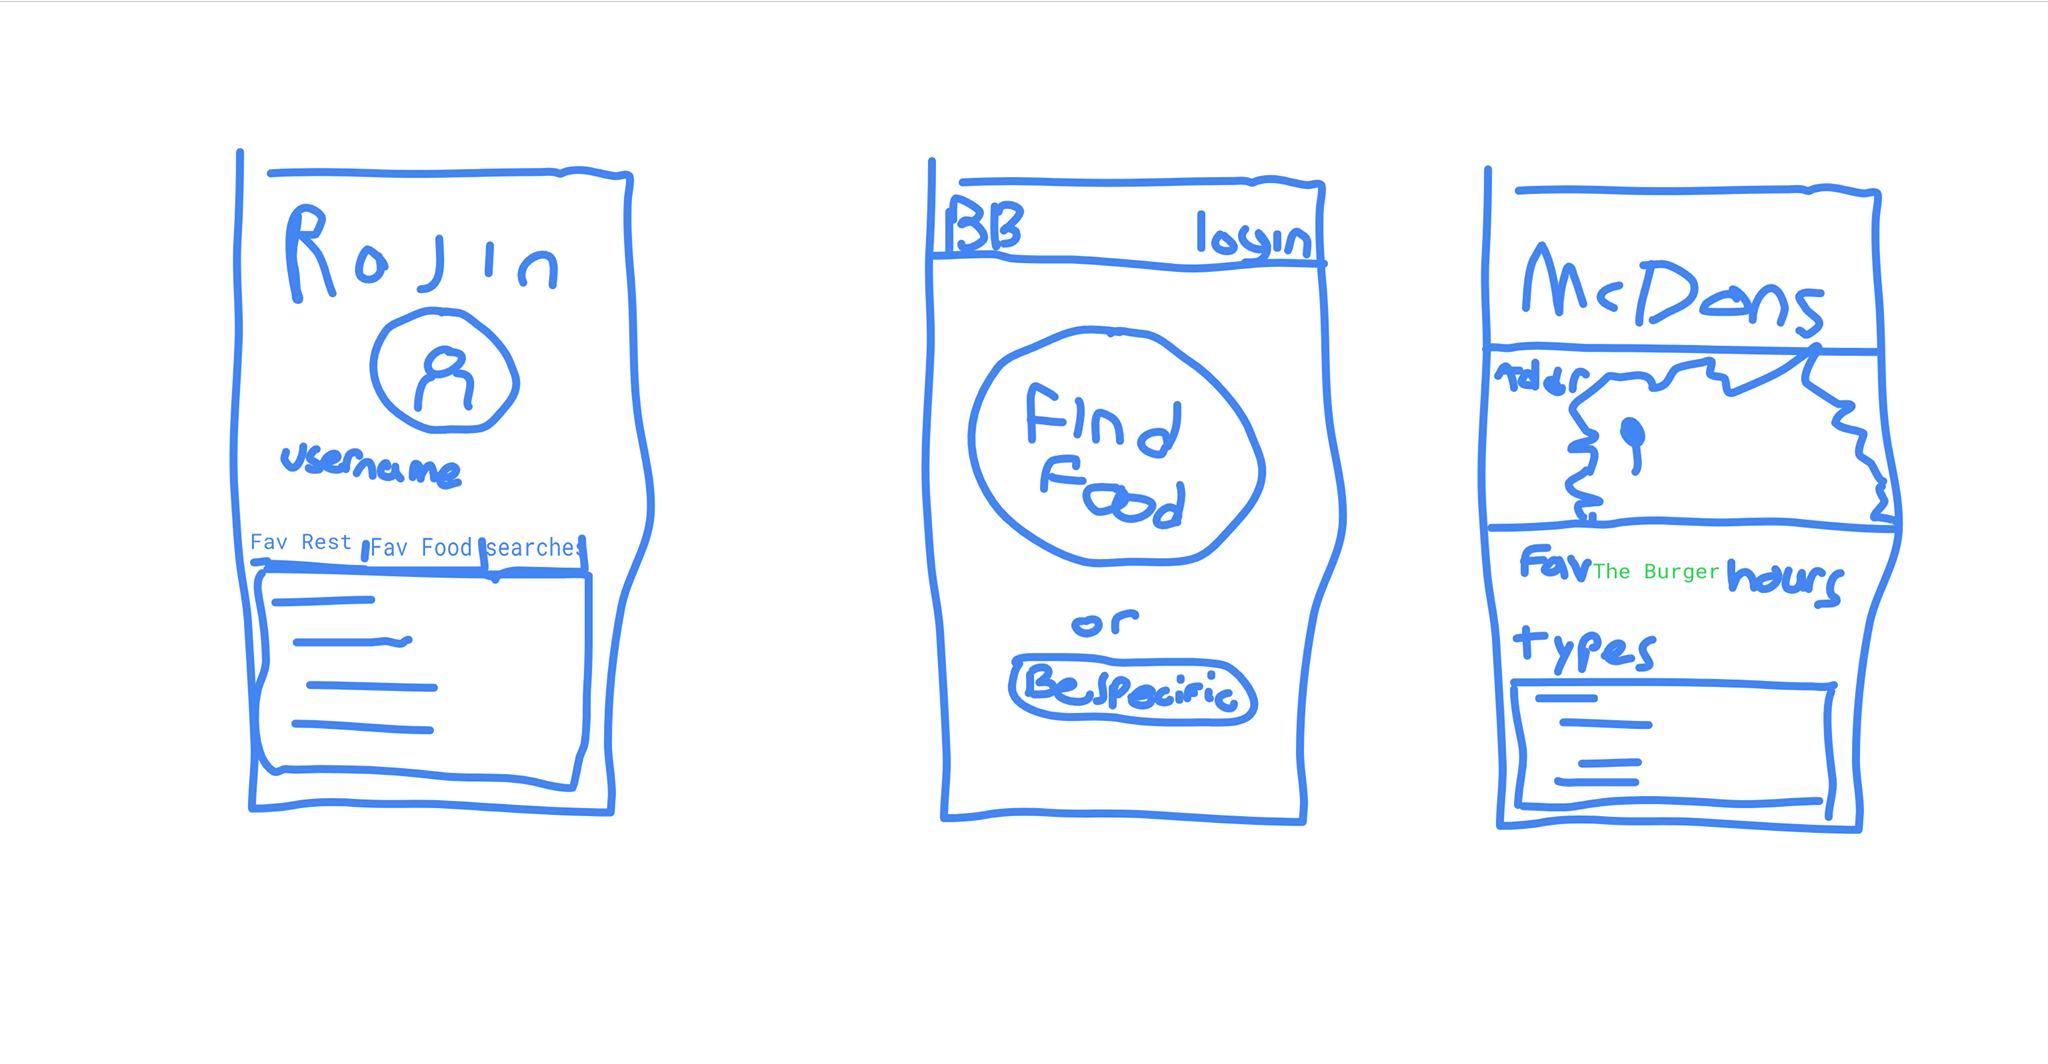 Rojin
username
Fav Rest Fav Food searches
BB login
Find
Food
or
Be specific
McDons
Addr
Fav The Burger hours
types